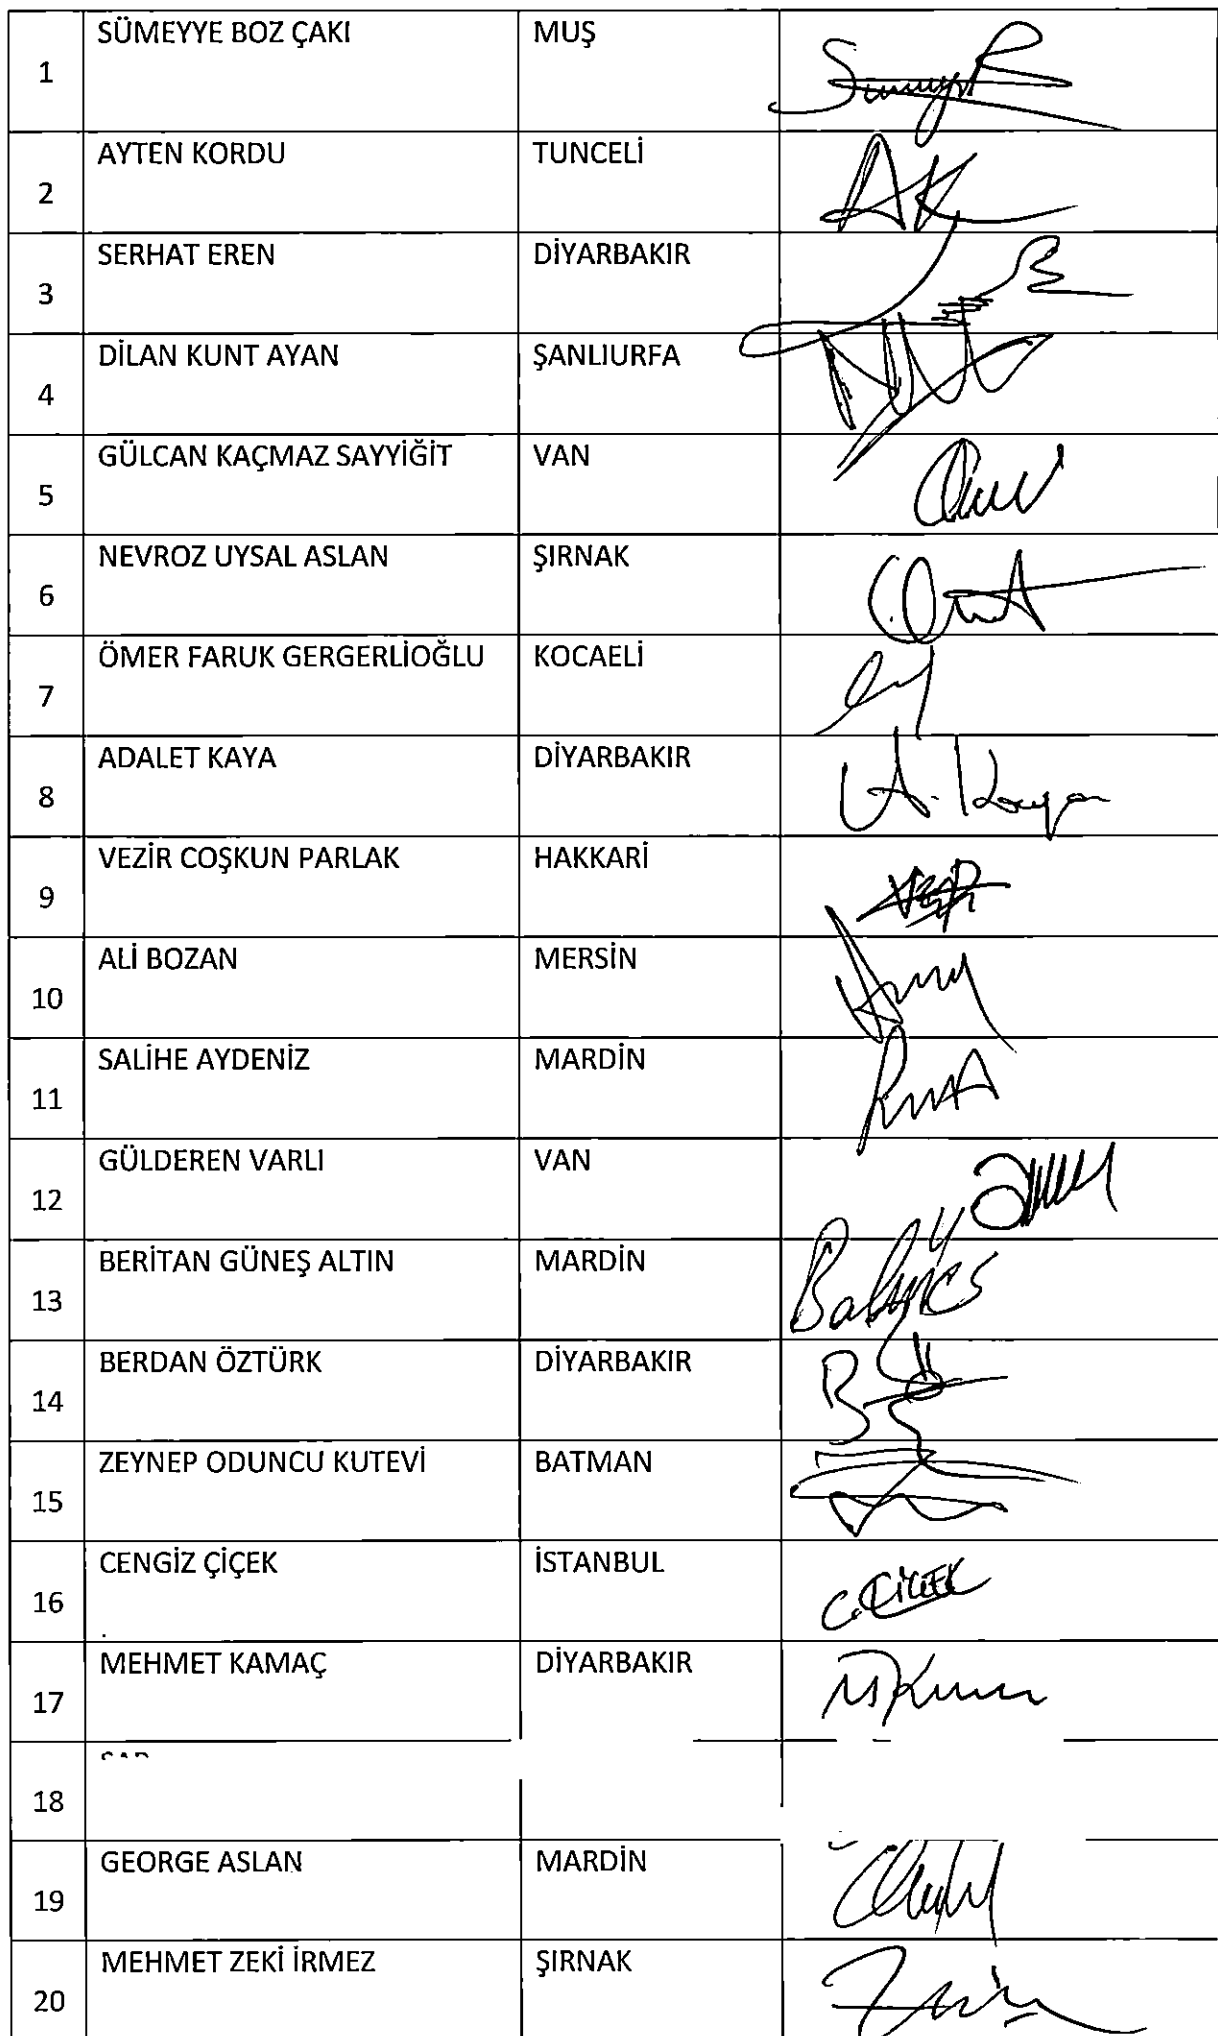 1 SÜMEYYE BOZ ÇAKI MUŞ
2 AYTEN KORDU TUNCELİ
3 SERHAT EREN DİYARBAKIR
4 DİLAN KUNT AYAN ŞANLIURFA
5 GÜLCAN KAÇMAZ SAYYİĞİT VAN
6 NEVROZ UYSAL ASLAN ŞIRNAK
7 ÖMER FARUK GERGERLİOĞLU KOCAELİ
8 ADALET KAYA DİYARBAKIR A. Kaya
9 VEZİR COŞKUN PARLAK HAKKARİ
10 ALİ BOZAN MERSİN
11 SALİHE AYDENİZ MARDİN
12 GÜLDEREN VARLI VAN
13 BERİTAN GÜNEŞ ALTIN MARDİN
14 BERDAN ÖZTÜRK DİYARBAKIR
15 ZEYNEP ODUNCU KUTEVİ BATMAN
16 CENGİZ ÇİÇEK İSTANBUL C. ÇİÇEK
17 MEHMET KAMAÇ DİYARBAKIR
18
19 GEORGE ASLAN MARDİN
20 MEHMET ZEKİ İRMEZ ŞIRNAK